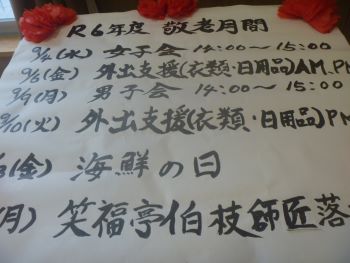 R6年度 敬老月間
9/4(水) 女子会 14:00〜15:00
9/6(金) 外出支援(衣類・日用品)AM.PM
9/9(月) 男子会 14:00〜15:00
9/10(火) 外出支援(衣類・日用品)PM
(金) 海鮮の日
(月) 笑福亭伯枝師匠落